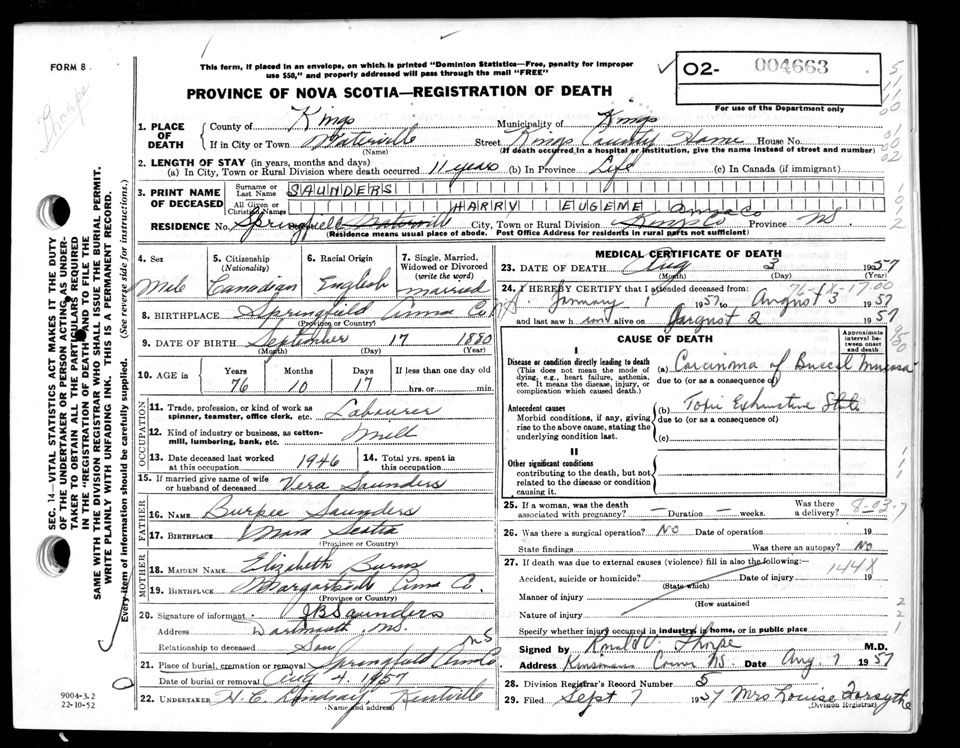 FORM 8
Thorpe
This form, if placed in an envelope, on which is printed "Dominion Statistics—Free, penalty for improper
use $50," and properly addressed will pass through the mail "FREE"
PROVINCE OF NOVA SCOTIA—REGISTRATION OF DEATH
02- 004663
For use of the Department only
SEC. 14—VITAL STATISTICS ACT MAKES IT THE DUTY
OF THE UNDERTAKER OR PERSON ACTING AS UNDER-
TAKER TO OBTAIN ALL THE PARTICULARS REQUIRED
IN THE "REGISTRATION OF DEATH" AND TO FILE THE
SAME WITH THE DIVISION REGISTRAR WHO SHALL ISSUE THE BURIAL PERMIT.
WRITE PLAINLY WITH UNFADING INK. THIS IS A PERMANENT RECORD.
Every item of information should be carefully supplied. (See reverse side for instructions.)
1. PLACE OF DEATH County of Kings Municipality of Kings
If in City or Town Waterville Street Kings County Home House No.
(Name) (If death occurred in a hospital or institution, give the name instead of street and number)
2. LENGTH OF STAY (in years, months and days)
(a) In City, Town or Rural Division where death occurred 11 years (b) In Province Life (c) In Canada (if immigrant)
3. PRINT NAME OF DECEASED Surname or Last Name SAUNDERS
All Given or Christian Names HARRY EUGEME
RESIDENCE No. Springfield Waterville City, Town or Rural Division Anna Co Kings Co Province NS
(Residence means usual place of abode. Post Office Address for residents in rural parts not sufficient)
4. Sex Male
5. Citizenship (Nationality) Canadian
6. Racial Origin English
7. Single, Married, Widowed or Divorced (write the word) married
8. BIRTHPLACE Springfield Anna Co NS
(Province or Country)
9. DATE OF BIRTH September 17 1880
(Month) (Day) (Year)
10. AGE in Years 76 Months 10 Days 17 If less than one day old hrs. or min.
OCCUPATION
11. Trade, profession, or kind of work as spinner, teamster, office clerk, etc. Labourer
12. Kind of industry or business, as cotton-mill, lumbering, bank, etc. Mill
13. Date deceased last worked at this occupation 1946 14. Total yrs. spent in this occupation
15. If married give name of wife or husband of deceased Vera Saunders
FATHER
16. NAME Burpee Saunders
17. BIRTHPLACE Nova Scotia
(Province or Country)
MOTHER
18. MAIDEN NAME Elizabeth Burns
19. BIRTHPLACE Margaretville Anna Co.
(Province or Country)
20. Signature of informant J B Saunders
Address Dartmouth, NS.
Relationship to deceased Son
21. Place of burial, cremation or removal Springfield Anna Co NS
Date of burial or removal Aug 4, 1957
22. UNDERTAKER H. C. Lindsay, Kentville
(Name and address)
9004-3.2
22-10-52
MEDICAL CERTIFICATE OF DEATH
23. DATE OF DEATH Aug 3 1957
(Month) (Day) (Year)
24. I HEREBY CERTIFY that I attended deceased from:
January 1 1957 to August 3 1957
and last saw him alive on August 2 1957
CAUSE OF DEATH
Approximate interval between onset and death
I
Disease or condition directly leading to death
(This does not mean the mode of dying, e.g., heart failure, asthenia, etc. It means the disease, injury, or complication which caused death.)
(a) Carcinoma of Buccal Mucosa
due to (or as a consequence of)
Antecedent causes
Morbid conditions, if any, giving rise to the above cause, stating the underlying condition last.
(b) Toxic Exhaustive State
due to (or as a consequence of)
(c)
II
Other significant conditions
contributing to the death, but not related to the disease or condition causing it.
25. If a woman, was the death associated with pregnancy? — Duration — weeks. Was there a delivery?
8-03.7
26. Was there a surgical operation? NO Date of operation 19
State findings Was there an autopsy? NO
27. If death was due to external causes (violence) fill in also the following:—
144X
Accident, suicide or homicide? Date of injury 19
(State which)
Manner of injury
(How sustained)
Nature of injury
Specify whether injury occurred in industry, in home, or in public place
Signed by Ronald V. Thorpe M.D.
Address Kinsmans Corner NS. Date Aug. 7 1957
28. Division Registrar's Record Number 5
29. Filed Sept 7 1957 Mrs Louise Forsythe
(Division Registrar)